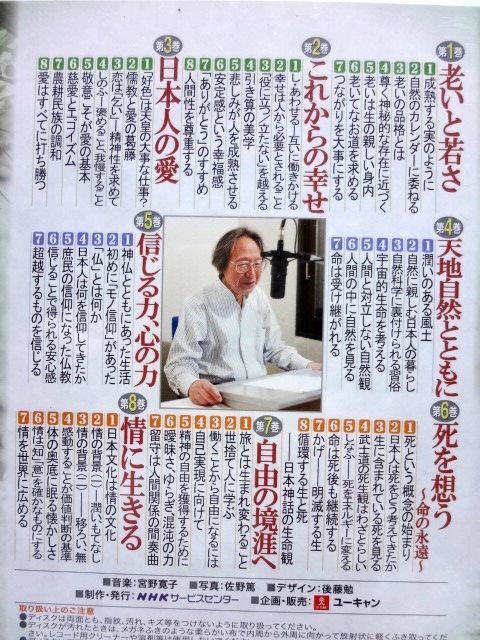 第1巻
老いと若さ
1 成熟する実のように
2 自然のカレンダーに委ねる
3 老いの品格とは
4 尊く神秘的な存在に近づく
5 老いは生の親しい身内
6 老いてなお道を求める
7 つながりを大事にする
第2巻
これからの幸せ
1 し・あわせる―互いに働きかける
2 幸せは人から必要とされること
3 「役に立つ/立たない」を越える
4 引き算の美学
5 悲しみが人を成熟させる
6 安定感という幸福感
7 「ありがとう」のすすめ
8 人間性を尊重する
第3巻
日本人の愛
1 「好色」は天皇の大事な仕事?
2 儒教と愛の葛藤
3 恋は「乞い」―精神性を求めて
4 しのぶ―褒めること、我慢すること
5 敬意こそが愛の基本
6 慈愛とエゴイズム
7 農耕民族の調和
8 愛はすべてに打ち勝つ
第4巻
天地自然とともに
1 潤いのある風土
2 自然に親しむ日本人の暮らし
3 自然科学に裏付けられる習俗
4 宇宙的生命を考える
5 人間と対立しない自然観
6 人間の中に自然を見る
7 命は受け継がれる
第5巻
信じる力、心の力
1 神仏とともにあった生活
2 初めに「モノ信仰」があった
3 「仏」とは何か
4 日本人は何を信仰してきたか
5 庶民の信仰になった仏教
6 信じることで得られる安心感
7 超越するものを信じる
第6巻
死を想う
〜命の永遠〜
1 死という概念の始まり
2 日本人は死をどう考えてきたか
3 生に含まれている死を見る
4 武士道の死生観はわざとらしい
5 しぬぶ―死をエネルギーに変える
6 命は死後も継続する
7 かげ―明滅する生
8 循環する生と死
―日本神話の生命観
第7巻
自由の境涯へ
1 旅とは生まれ変わること
2 世捨て人に学ぶ
3 働くことから自由になるには
4 自己実現に向けて
5 精神の自由を獲得するために
6 曖昧さ、ゆらぎ、混沌の力
7 留守は人間関係の間奏曲
第8巻
情に生きる
1 日本文化は情の文化
2 情の背景(一)――潤いもてなし
3 情の背景(二)――移ろい、無
4 感動することが価値判断の基準
5 体の奥底に眠る懐かしさ
6 情は「知」「意」を確かなものに
7 情を世界に広める
■音楽:宮野寛子 ■写真:佐野篤 ■デザイン:後藤勉
■制作・発行:NHKサービスセンター ■企画・販売:ユーキャン
取り扱い上のご注意
●ディスクは両面とも、指紋、汚れ、キズ等をつけないように取り扱ってください。
●ディスクが汚れたときは、メガネふきのような柔らかい布で内周から外周に向かって放射状に軽くふき取って